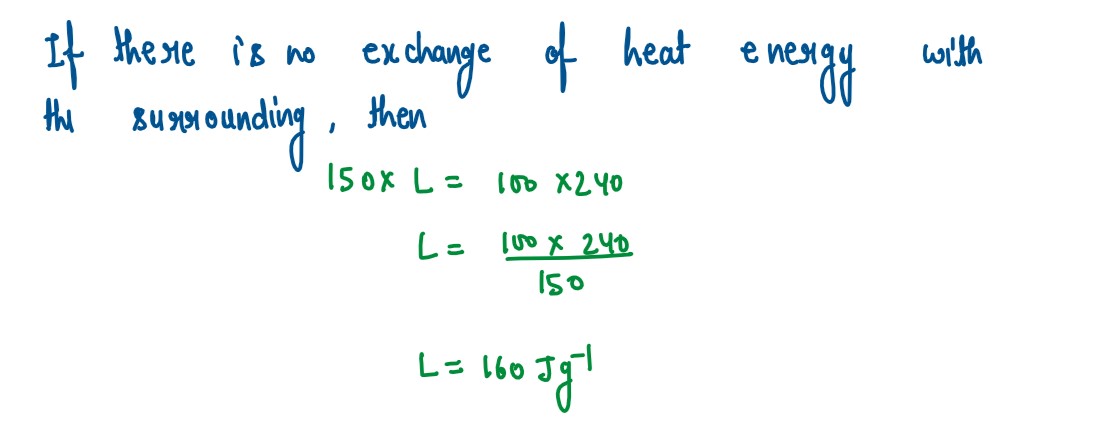 If there is no exchange of heat energy with
the surrounding, then
150 x L = 100 x 240
L = 100 x 240
150
L = 160 Jg⁻¹